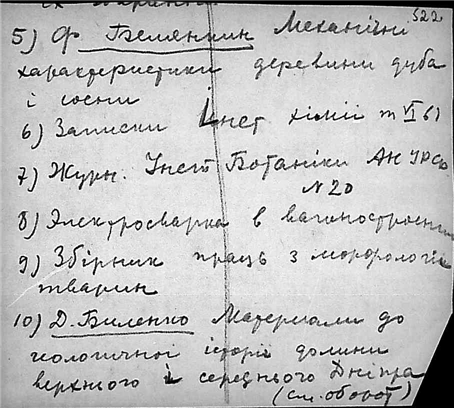 522
5) Ф. Белянкин Механічні
характеристики деревини дуба
і сосни
6) Записки Інст хімії т VI в)
7) Журн. Інст Ботаніки АН УРСР
N 20
8) Электросварка в вагоностроении
9) Збірник праць з морфології
тварин
10) Д. Биленко Материали до
геологичної історії долини
верхнього і середнього Дніпра
(см. оборот)